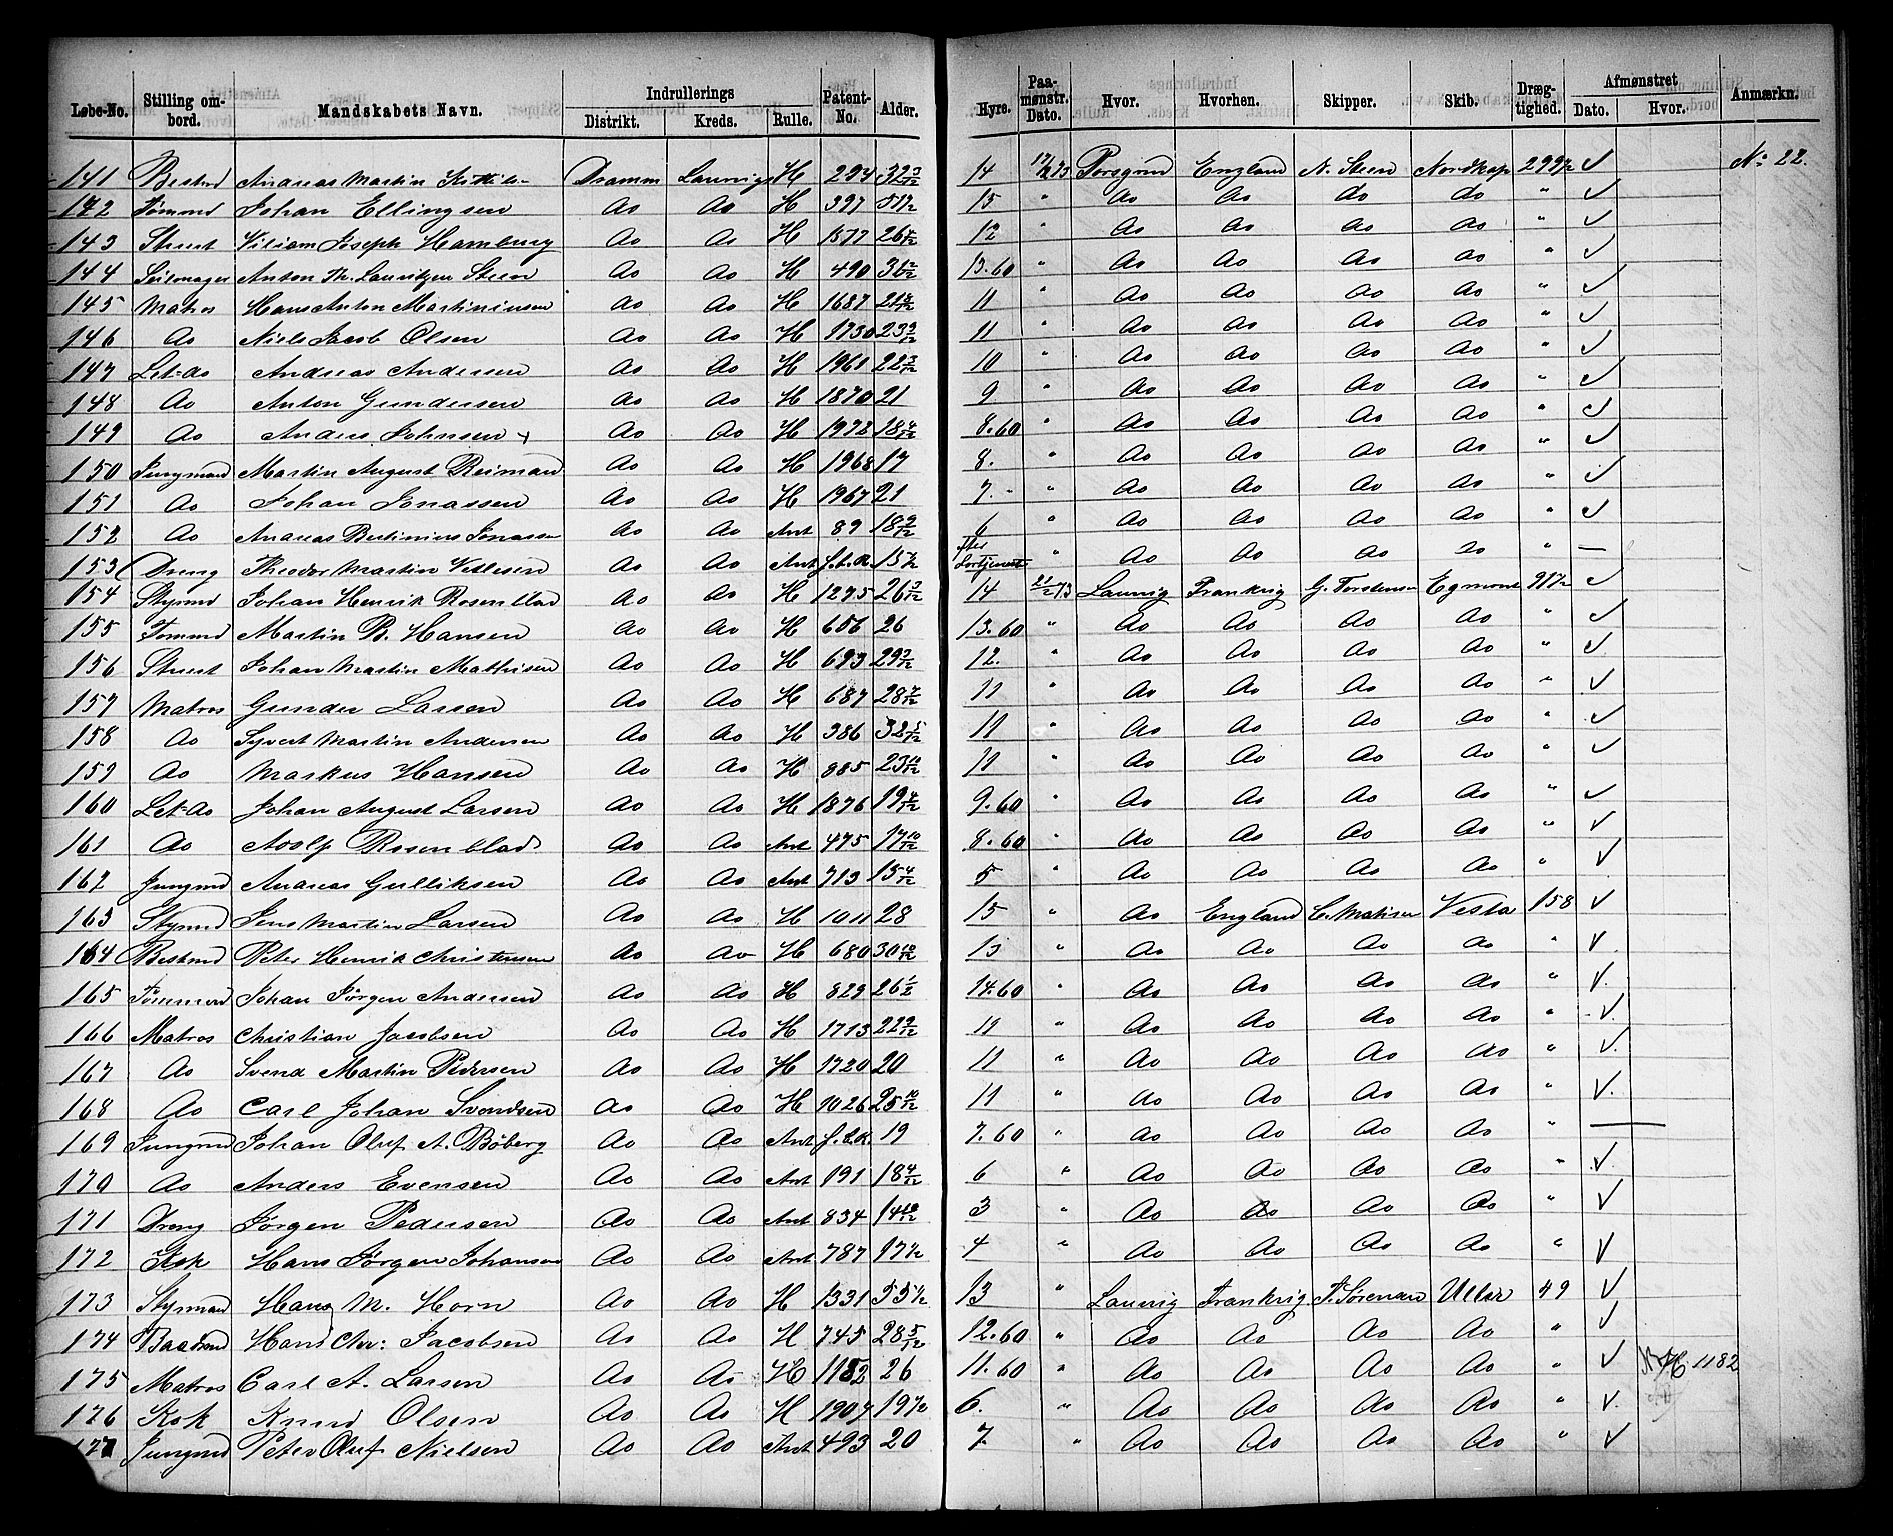 Løbe-No. Stilling ombord. Mandskabets Navn. Indrullerings Distrikt. Kreds. Rulle. Patent-No. Alder. Hyre. Paamønstr. Dato. Hvor. Hvorhen. Skipper. Skib. Drægtighed. Afmønstret Dato. Hvor. Anmærkn.
141 Bestmd Andreas Martin Dramm Laurvig H 294 32 3/12 14 17/2 73 Porsgrund England N. Steen Nordkap 299 1/2 ✓ No 22.
142 Tømmd Johan Ellingsen do do H 397 51 1/2 15 " do do do do " ✓
143 Stuert Viliam Joseph Hamburg do do H 1577 12 " do do do do " ✓
144 Seilmager Anton Th. Lauritzen Steen do do H 490 13.60 " do do do do " ✓
145 Matros Hans Anton Martiniusen do do H 1687 11 " do do do do " ✓
146 do Niels Jacob Olsen do do H 1730 23 9/12 11 " do do do do " ✓
147 Let-do Andreas Andersen do do H 1961 22 3/12 10 " do do do do " ✓
148 do Anton Gundersen do do H 1870 21 9 " do do do do " ✓
149 do Anders Johnsen + do do H 1972 18 4/12 8.60 " do do do do " ✓
150 Jungmand Martin August Reimand do do H 1968 17 8. " do do do do " ✓
151 do Johan Jonassen do do H 1967 21 7. " do do do do " ✓
152 do Andreas Bertinius Jonassen do do Ant 89 18 9/12 6 " do do do do " ✓
153 Dreng Theodor Martin Vetlesen do do Ant f.t.R. 15 1/2 efter Fortjeneste " do do do do " —
154 Styrmd Johan Henrik Rosenblad do do H 1275 26 3/12 14 21/2 73 Laurvig Frankrig G. Torstensen Egmont 97 1/2 ✓
155 Tømmd Martin B. Hansen do do H 656 26 13.60 " do do do do " ✓
156 Stuert Johan Martin Mathisen do do H 693 12. " do do do do " ✓
157 Matros Gunder Larsen do do H 687 28 7/12 11 " do do do do " ✓
158 do Syvert Martin Andersen do do H 386 32 5/12 11 " do do do do " ✓
159 do Markus Hansen do do H 885 23 10/12 11 " do do do do " ✓
160 Let-do Johan August Larsen do do H 1876 19 4/12 9.60 " do do do do " ✓
161 do Adolf Rosenblad do do Ant 475 17 10/12 8.60 " do do do do " ✓
162 Jungmd Andreas Gulliksen do do Ant 713 15 4/12 5 " do do do do " ✓
163 Styrmd Jens Martin Larsen do do H 1011 28 15 " do England C. Matisen Vesta 158 ✓
164 Bestmd Peter Henrik Christensen do do H 680 30 10/12 15 " do do do do " ✓
165 Tømmermd Johan Jørgen Andersen do do H 829 26 1/2 14.60 " do do do do " ✓
166 Matros Christian Jacobsen do do H 1713 22 9/12 11 " do do do do " ✓
167 do Svend Martin Pedersen do do H 1720 20 11 " do do do do " ✓
168 do Carl Johan Svendsen do do H 1026 25 10/12 11 " do do do do " ✓
169 Jungmd Johan Oluf A. Bøberg do do Ant f.t.R. 19 7.60 " do do do do " —
170 do Anders Evensen do do Ant 191 18 4/12 6 " do do do do " ✓
171 Dreng Jørgen Pedersen do do Ant 834 14 10/12 3 " do do do do " ✓
172 Kok Hans Jørgen Johansen do do Ant 787 17 1/2 4 " do do do do " ✓
173 Styrmand Hans M. Horn do do H 1331 55 1/2 13 " Laurvig Frankrig Sørensen Ullar 49 ✓
174 Baadsmd Hans Chr: Jacobsen do do H 745 28 5/12 12.60 " do do do do " ✓
175 Matros Carl A. Larsen do do H 1182 26 11.60 " do do do do " ✓ H 1182
176 Kok Knud Olsen do do H 1907 19 1/2 6. " do do do do " ✓
177 Jungmd Peter Oluf Nielsen do do Ant 493 20 7. " do do do do " ✓